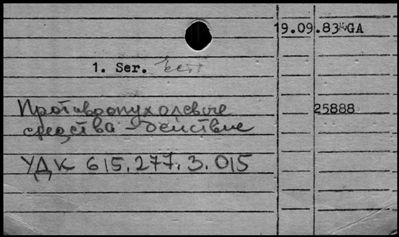 19.09.83 GA
1. Ser.
Противоопухолевые 25888
средства - действие
УДК 615.277.3.015